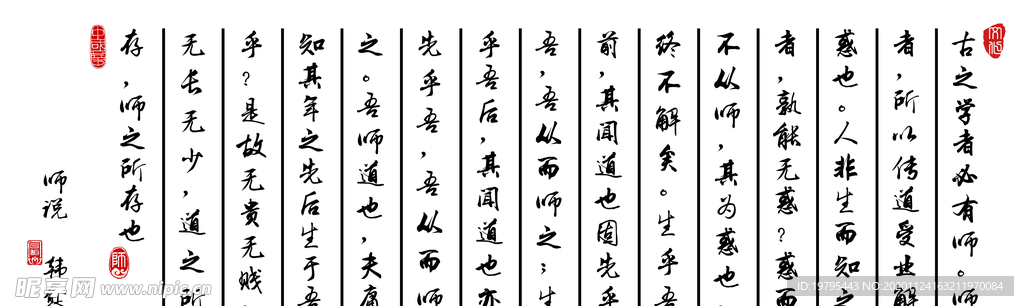 古之学者必有师。师
者，所以传道受业解
惑也。人非生而知之
者，孰能无惑？惑而
不从师，其为惑也
终不解矣。生乎吾
前，其闻道也固先乎
吾，吾从而师之；生
乎吾后，其闻道也亦
先乎吾，吾从而师
之。吾师道也，夫庸
知其年之先后生于吾
乎？是故无贵无贱
无长无少，道之所
存，师之所存也
师说
韩愈
中国梦
www.nipic.com
ID:19795443 NO:20201124163211970084